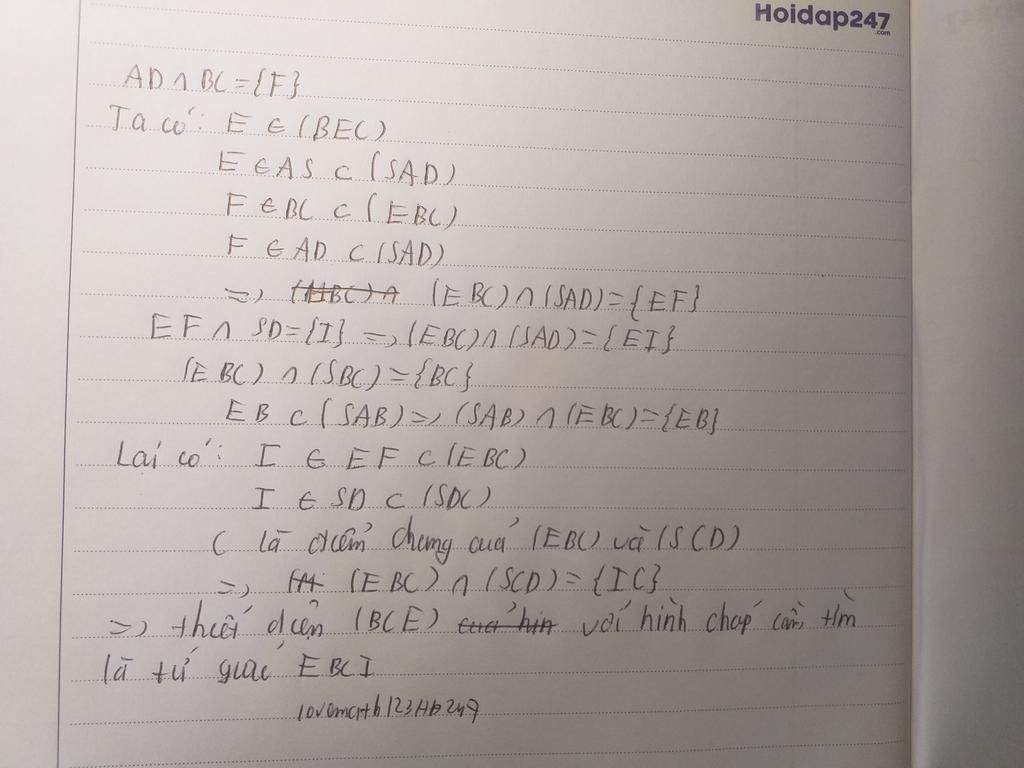 Hoidap247
.com
AD ∩ BC = {F}
Ta có: E ∈ (BEC)
E ∈ AS ⊂ (SAD)
F ∈ BC ⊂ (EBC)
F ∈ AD ⊂ (SAD)
=> (HBC) ∩ (EBC) ∩ (SAD) = {EF}
EF ∩ SD = {I} => (EBC) ∩ (SAD) = {EI}
(EBC) ∩ (SBC) = {BC}
EB ⊂ (SAB) => (SAB) ∩ (EBC) = {EB}
Lại có: I ∈ EF ⊂ (EBC)
I ∈ SD ⊂ (SDC)
C là điểm chung của (EBC) và (SCD)
=> (EBC) ∩ (SCD) = {IC}
=> thiết diện (BCE) của hìn với hình chóp cần tìm
là tứ giác EBCI